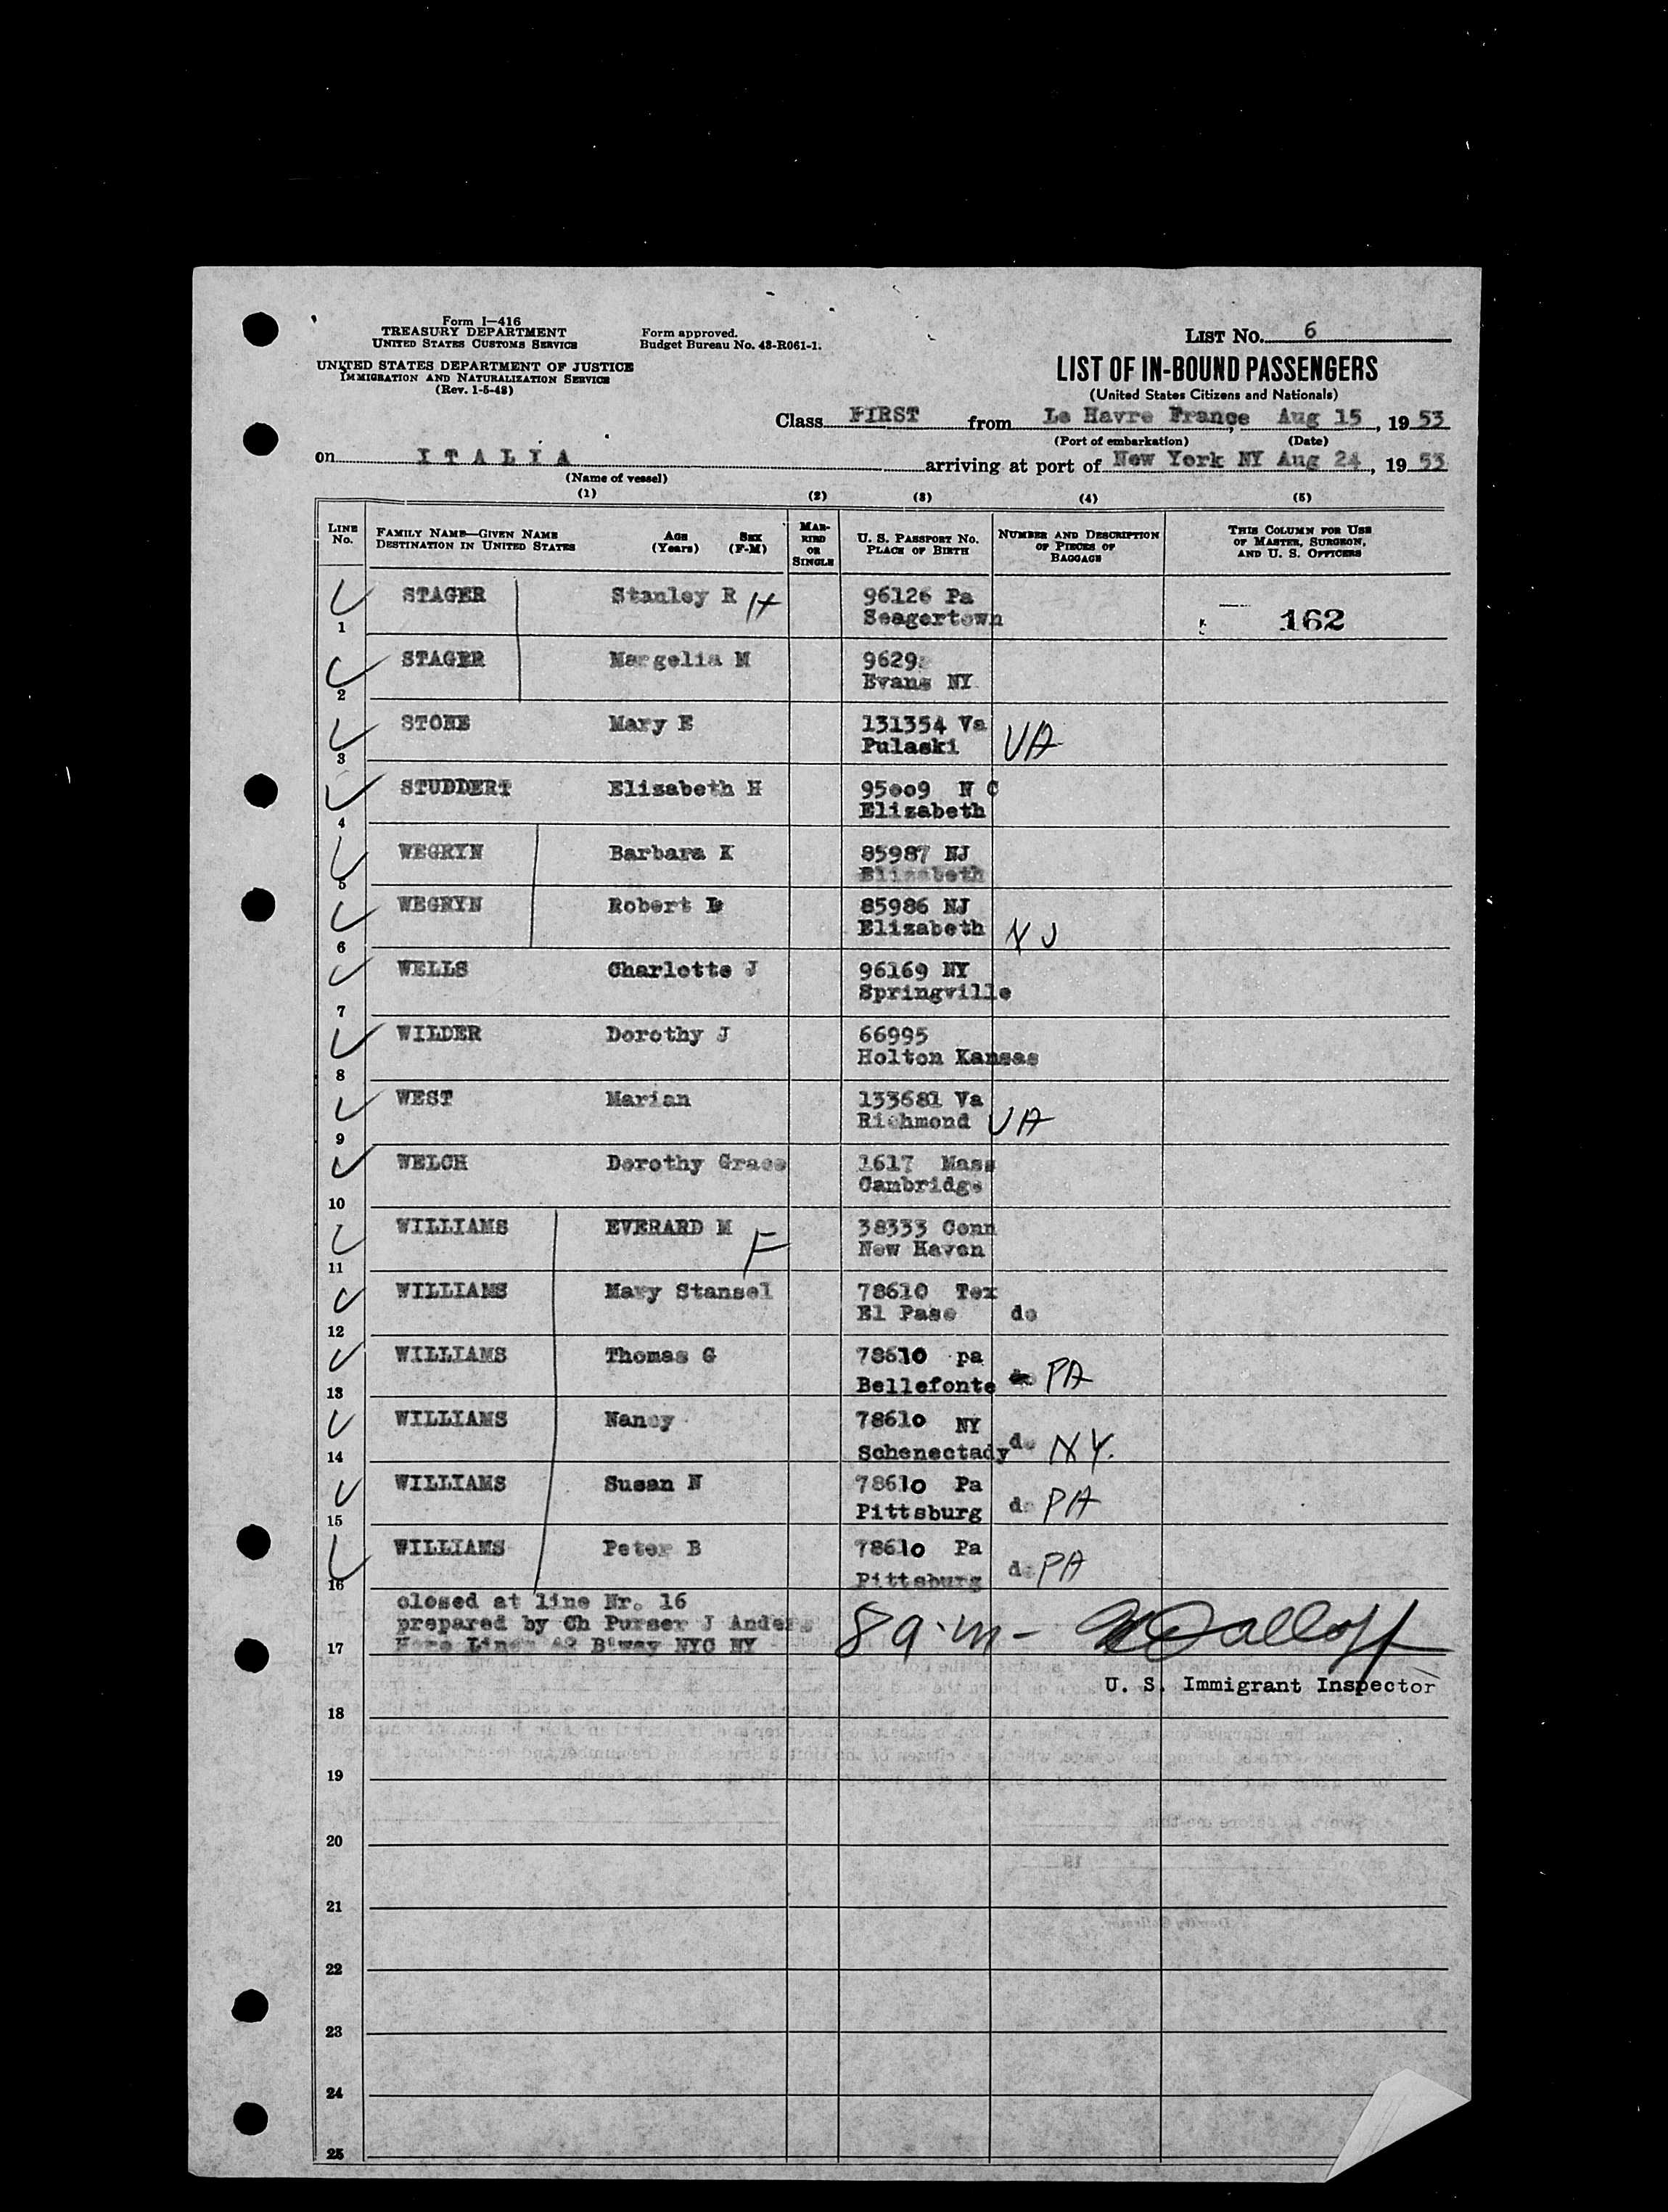 Form I—416
TREASURY DEPARTMENT
UNITED STATES CUSTOMS SERVICE
UNITED STATES DEPARTMENT OF JUSTICE
IMMIGRATION AND NATURALIZATION SERVICE
(Rev. 1-5-48)
Form approved.
Budget Bureau No. 43-R061-1.
LIST No. 6
LIST OF IN-BOUND PASSENGERS
(United States Citizens and Nationals)
Class FIRST from Le Havre France, Aug 15, 1953
(Port of embarkation) (Date)
on ITALIA arriving at port of New York NY Aug 24, 1953
(Name of vessel)
(1) (2) (3) (4) (5)
LINE No.
FAMILY NAME—GIVEN NAME
DESTINATION IN UNITED STATES
AGE (Years)
SEX (F-M)
MARRIED OR SINGLE
U. S. PASSPORT No.
PLACE OF BIRTH
NUMBER AND DESCRIPTION OF PIECES OF BAGGAGE
THIS COLUMN FOR USE OF MASTER, SURGEON, AND U. S. OFFICERS
1 STAGER Stanley R H 96126 Pa
Seagertown 162
2 STAGER Margelia M 9629
Evans NY
3 STONE Mary E 131354 Va
Pulaski VA
4 STUDDERT Elizabeth H 95009 N C
Elizabeth
5 WEGRYN Barbara K 85987 NJ
Elizabeth
6 WEGRYN Robert L 85986 NJ
Elizabeth NJ
7 WELLS Charlotte J 96169 NY
Springville
8 WILDER Dorothy J 66995
Holton Kansas
9 WEST Marian 133681 Va
Richmond VA
10 WELCH Dorothy Grace 1617 Mass
Cambridge
11 WILLIAMS EVERARD M F 38333 Conn
New Haven
12 WILLIAMS Mary Stansel 78610 Tex
El Paso do
13 WILLIAMS Thomas G 78610 pa
Bellefonte PA
14 WILLIAMS Nancy 78610 NY
Schenectady do NY.
15 WILLIAMS Susan N 78610 Pa
Pittsburg do PA
16 WILLIAMS Peter B 78610 Pa
Pittsburg do PA
closed at line Nr. 16
prepared by Ch Purser J Anders
17 Home Lines 42 B'way NYC NY
8 a.m-
U. S. Immigrant Inspector
18
19
20
21
22
23
24
25